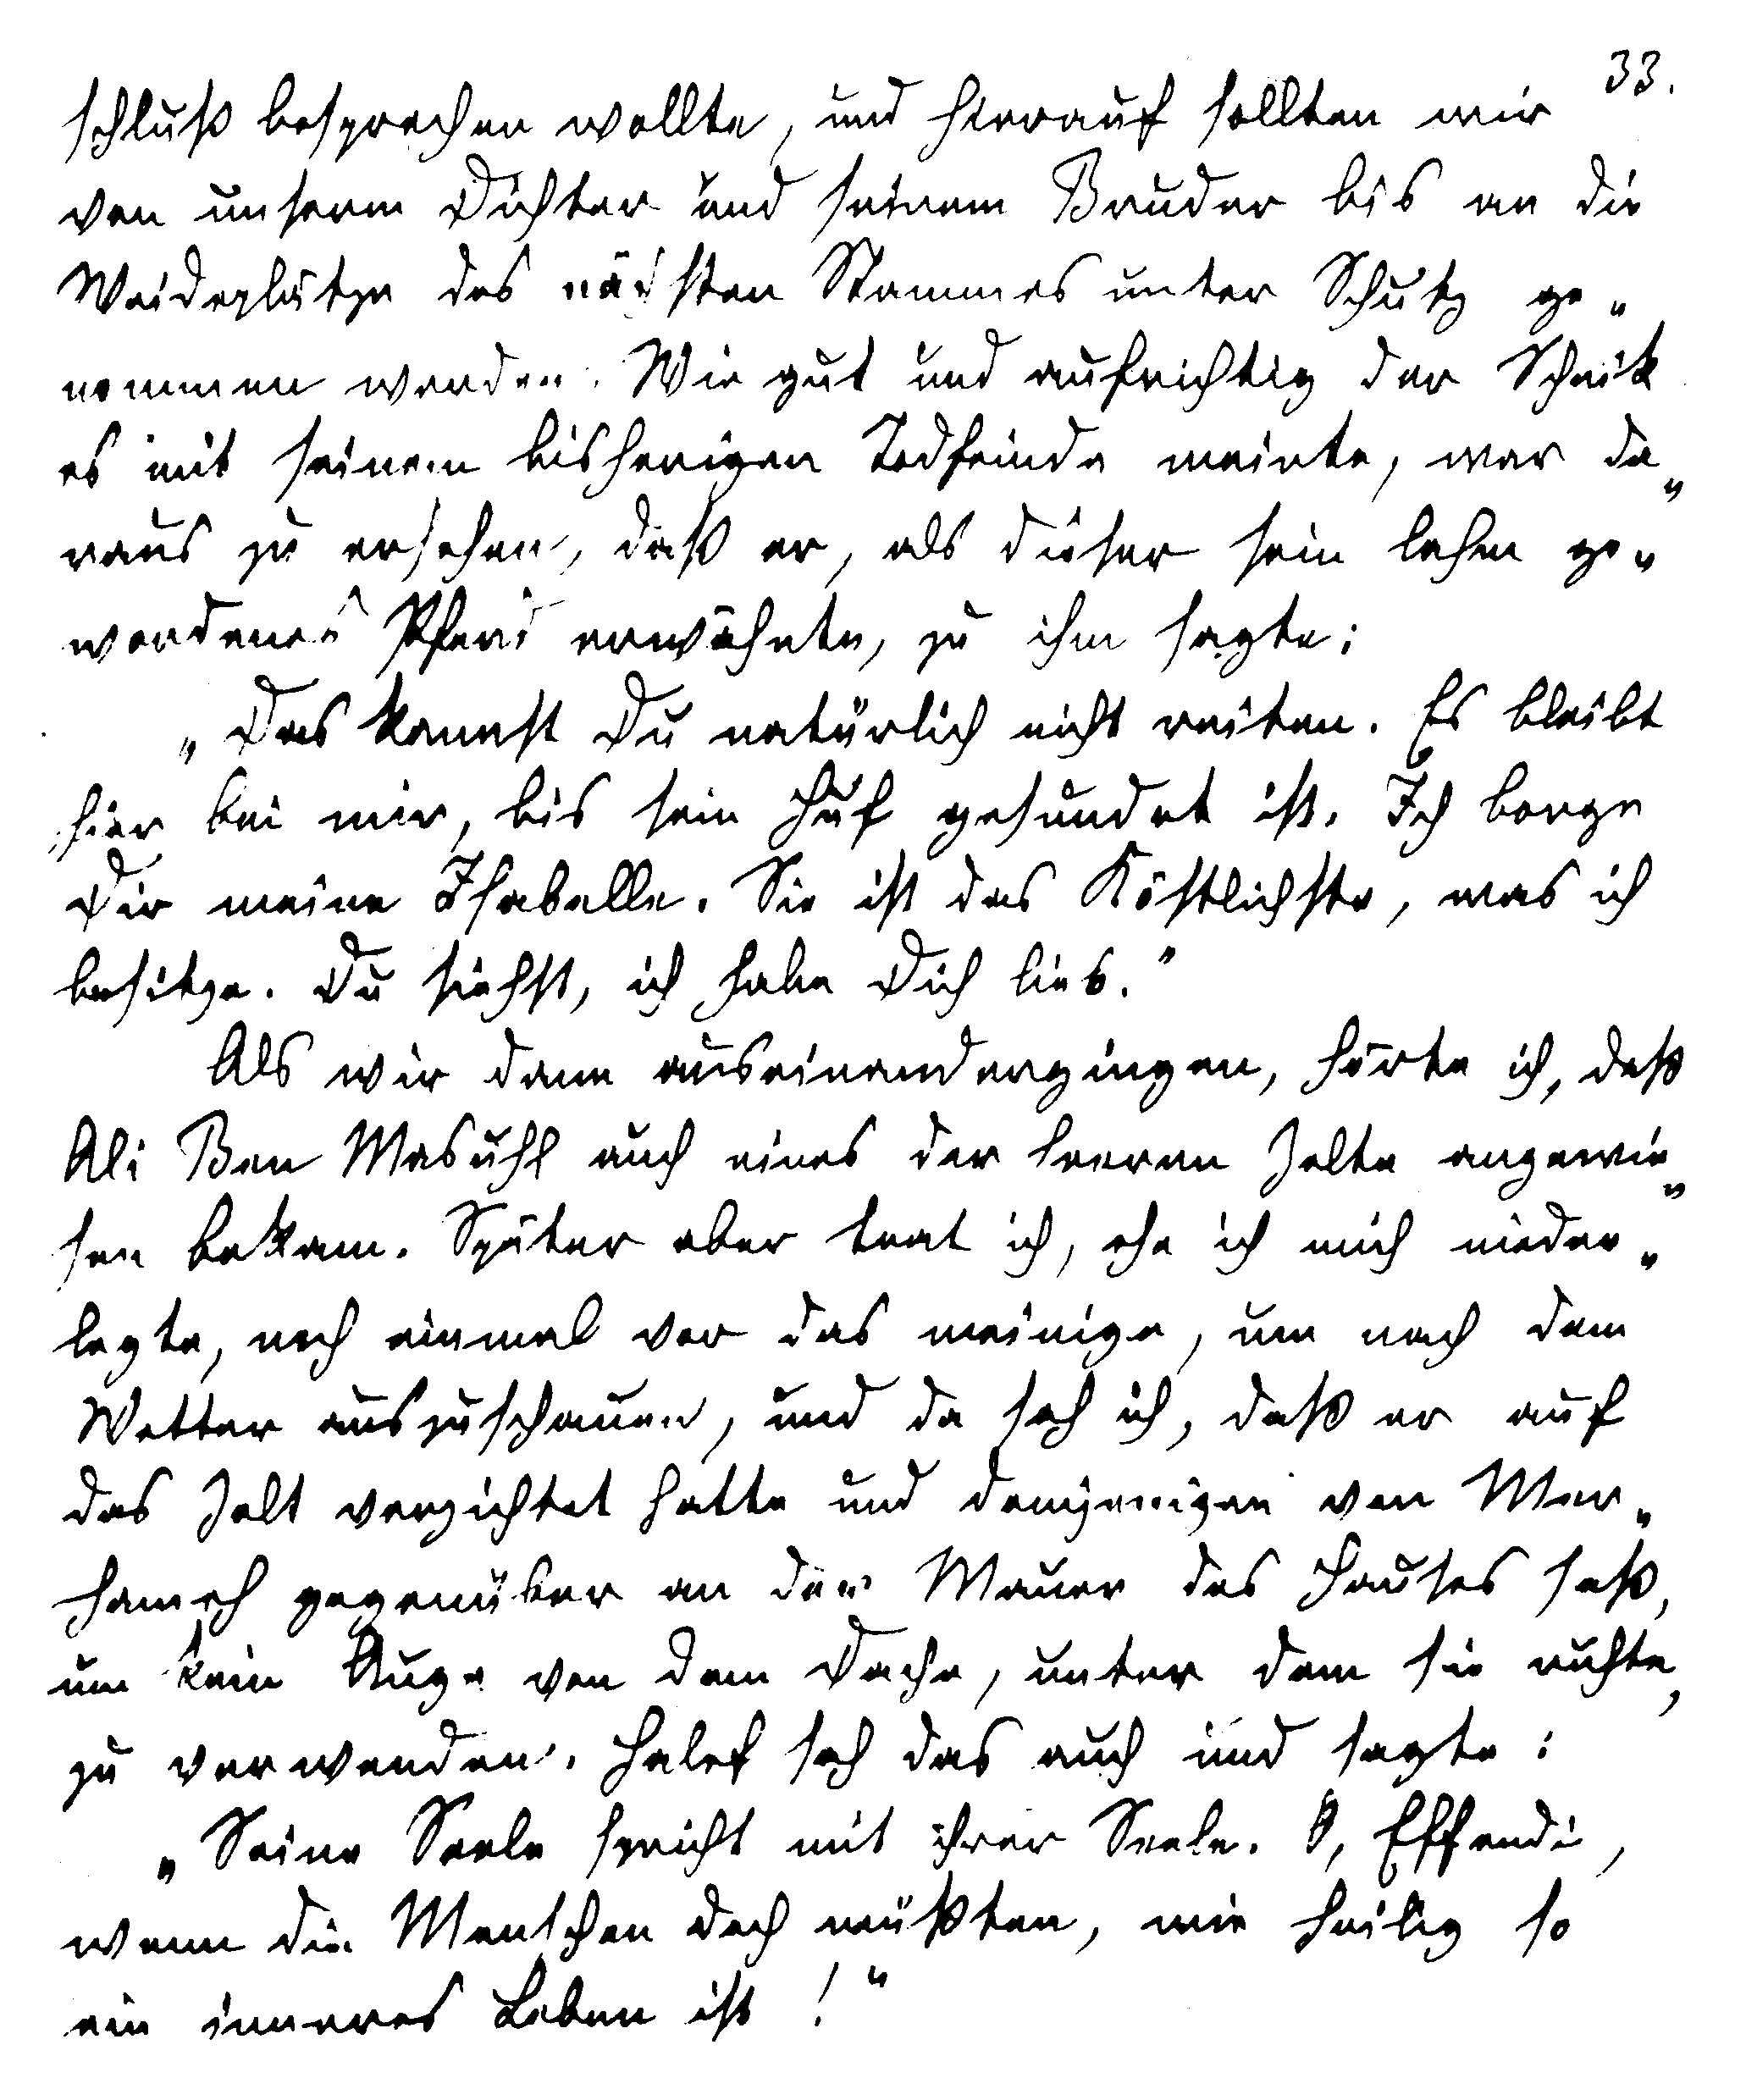 33.
schluß besprechen wollte, und hierauf sollten wir
von unserm Dichter und seinem Bruder bis an die
Weideplätze des nächsten Stammes unter Schutz ge„
nommen werden. Wie gut und aufrichtig der Scheik
es mit seinem bisherigen Todfeinde meinte, war da„
raus zu ersehen, daß er, als dieser sein lahm ge„
wordenes Pferd erwähnte, zu ihm sagte:
„Das kannst Du natürlich nicht reiten. Es bleibt
hier bei mir, bis sein Huf gesundet ist. Ich borge
Dir meine Isabelle. Sie ist das Köstlichste, was ich
besitze. Du siehst, ich habe Dich lieb.“
Als wir dann auseinandergingen, hörte ich, daß
Ali Ben Masuhl auch eines der leeren Zelte angewie„
sen bekam. Später aber trat ich, ehe ich mich nieder„
legte, noch einmal vor das meinige, um nach dem
Wetter auszuschauen, und da sah ich, daß er auf
das Zelt verzichtet hatte und demjenigen von Mer„
hameh gegenüber an der Mauer des Hauses saß,
um kein Auge von dem Dache, unter dem sie ruhte,
zu verwenden. Halef sah das auch und sagte:
„Seine Seele spricht mit ihrer Seele. O, Effendi,
wenn die Menschen doch wüßten, wie heilig so
ein inneres Leben ist!“